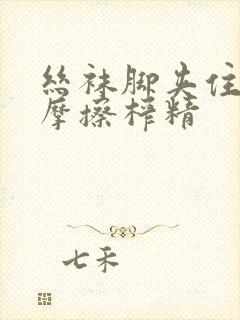 丝袜脚夹住
摩擦榨精
七禾